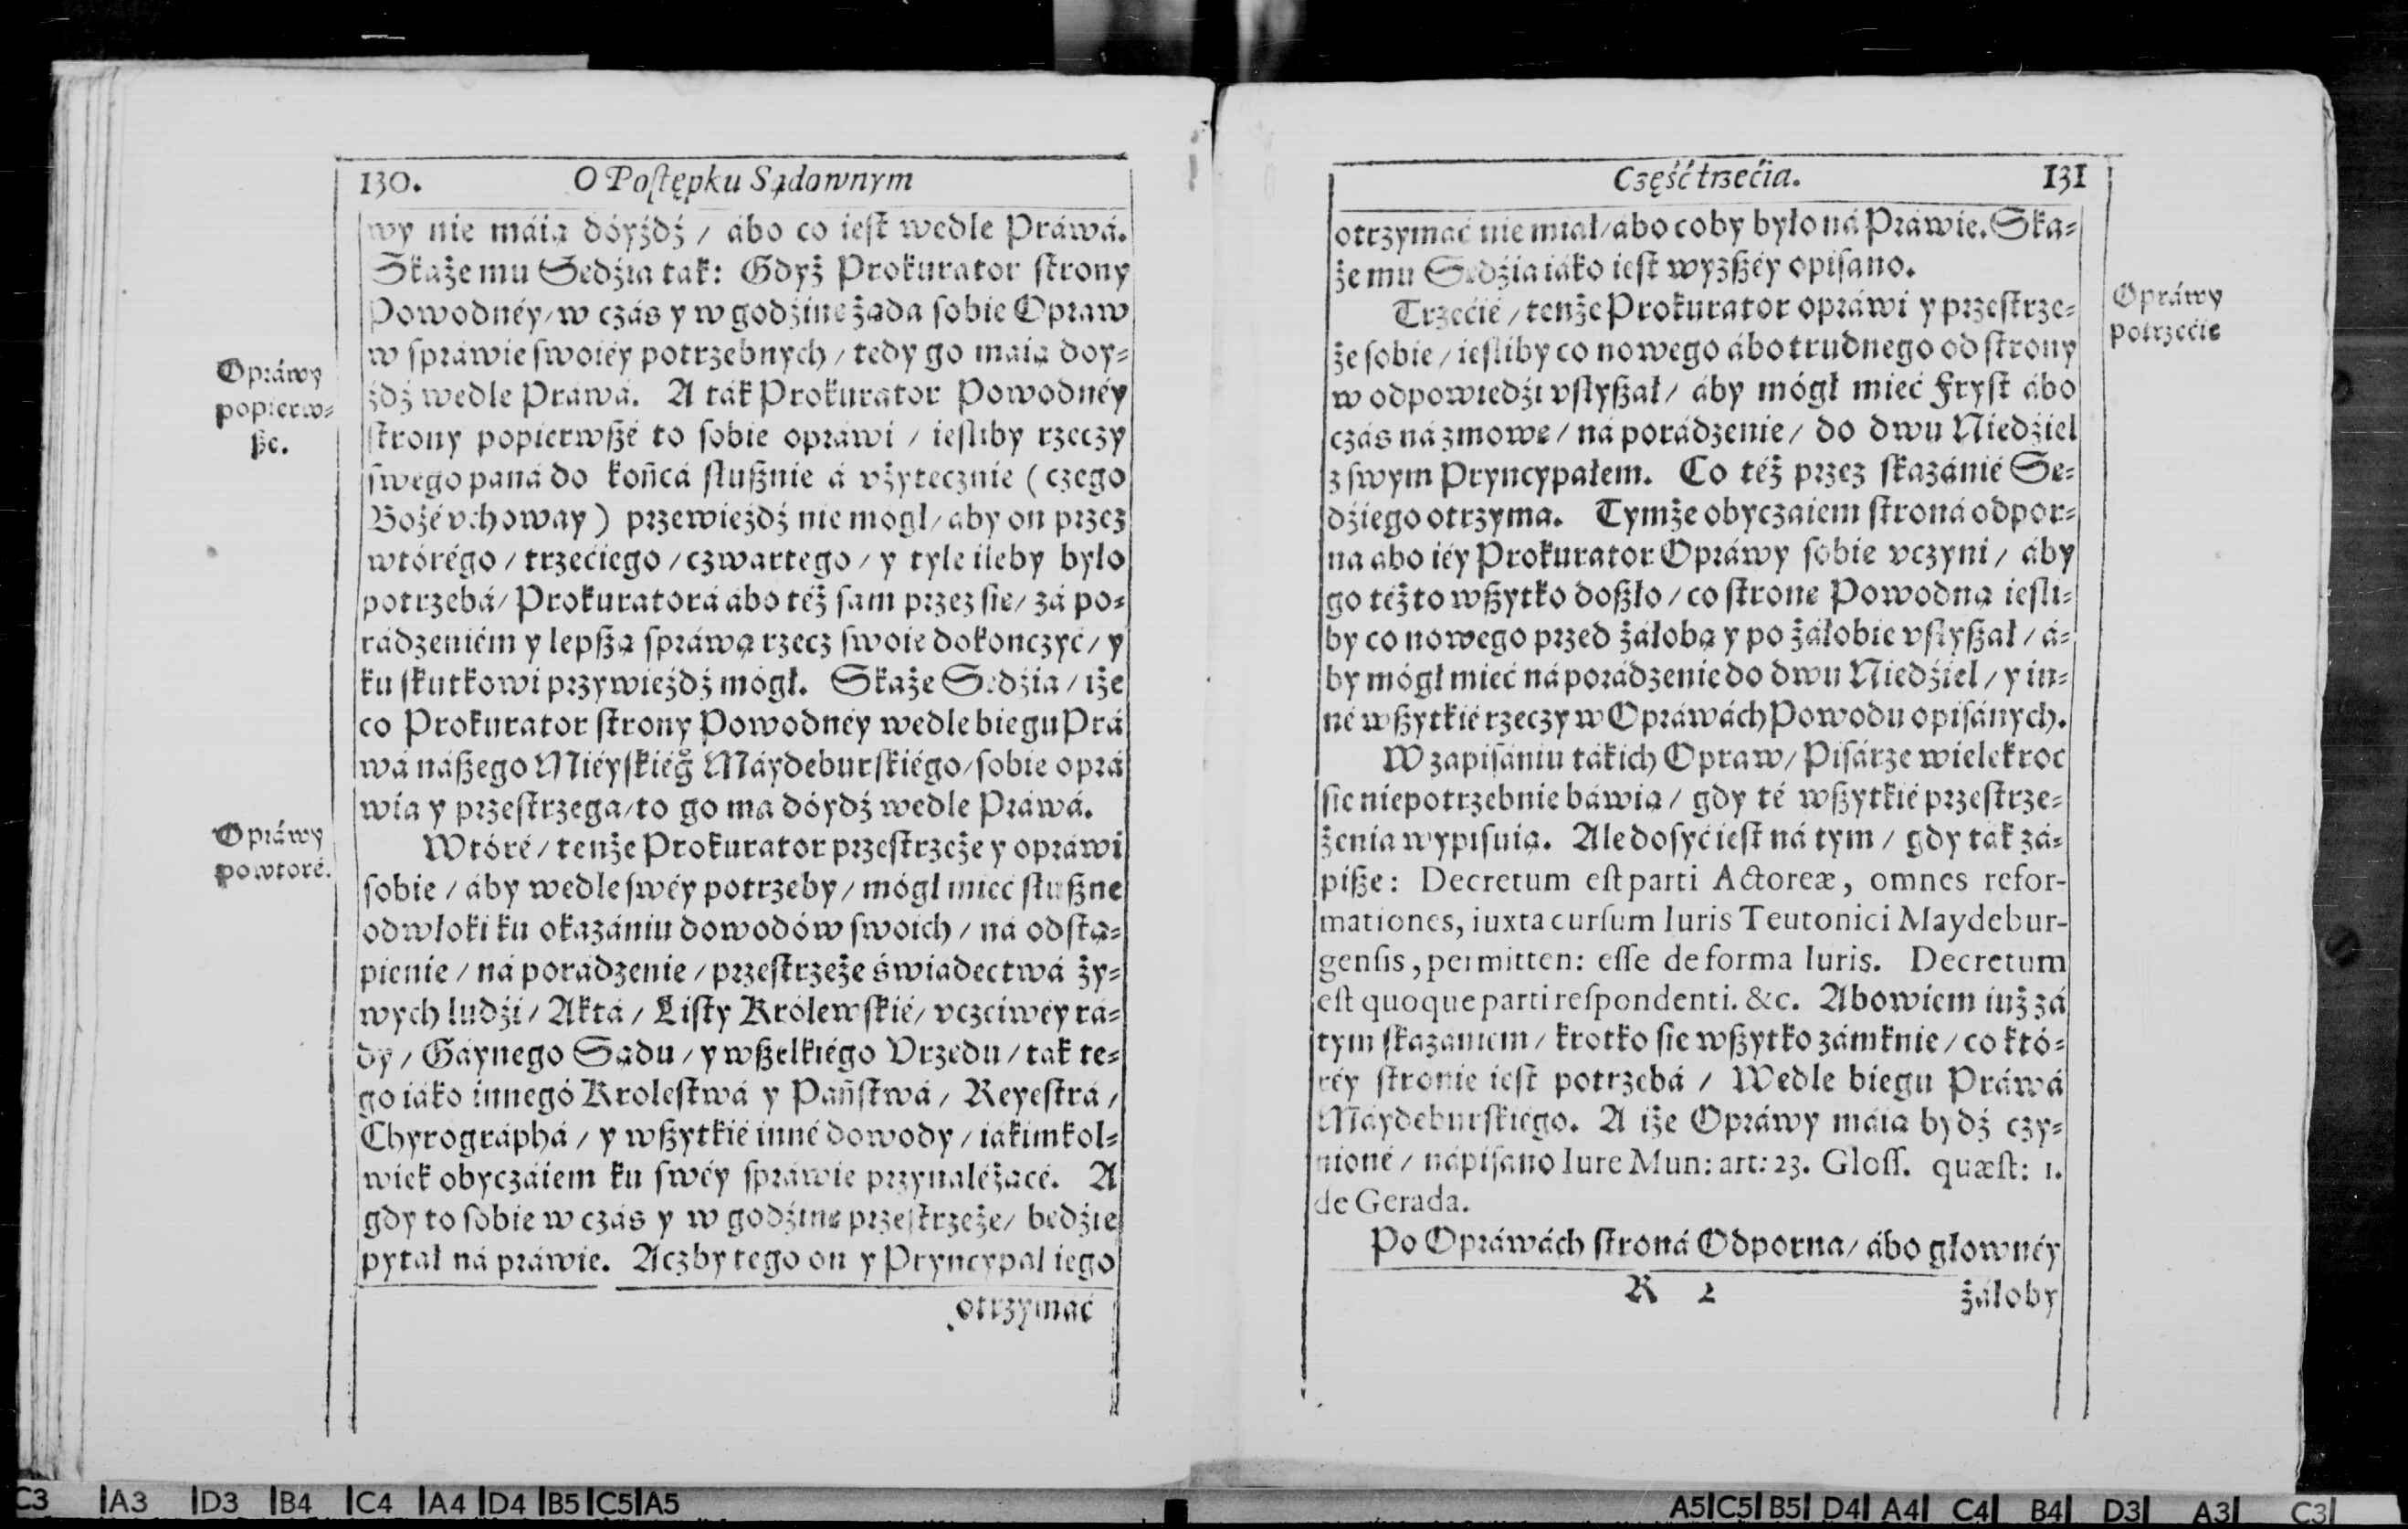 130. O Postępku Sądownym
wy nie máią dóyźdź / ábo co iest wedle Práwá.
Skaże mu Sedźia tak: Gdyż Prokurator strony
Powodnéy / w czás y w godźine żąda sobie Opraw
w spráwie swoiéy potrzebnych / tedy go maią doy-
źdź wedle Práwá. A ták Prokurator Powodnéy
strony popierwszé to sobie opráwi / iesliby rzeczy
swego páná do końcá słusznie á vżytecznie (czego
Bożé vchoway) przewieźdź nie mógł / aby on przez
wtórégo / trzećiego / czwartego / y tyle ileby było
potrzebá / Prokuratorá ábo téż sam przez sie / zá po-
rádzeniém y lepszą spráwą rzecz swoie dokonczyć / y
ku skutkowi przywieźdź mógł. Skaże Sedźia / iże
co Prokurator strony Powodnéy wedle biegu Prá
wá nászego Miéyskiég° Máydeburskiégo / sobie oprá
wia y przestrzega / to go ma dóydź wedle Práwá.
Wtóré / tenże Prokurator przestrzeże y opráwi
sobie / áby wedle swéy potrzeby / mógł mieć słuszne
odwłoki ku okazániu dowodów swoich / ná odstą-
pienie / ná porádzenie / przestrzeże świadectwá ży-
wych ludźi / Aktá / Listy Królewskié / vczciwéy rá-
dy / Gáynego Sądu / y wszelkiégo Vrzedu / tak te-
go iáko innegó Krolestwá y Páństwá / Reyestrá /
Chyrográphá / y wszytkié inné dowody / iákimkol-
wiek obyczáiem ku swéy spráwie przynaléżącé. A
gdy to sobie w czás y w godźine przestrzeże / bedźie
pytał ná práwie. Aczby tego on y Pryncypał iego
otrzymáć
Opráwy
popierw-
szé.
Opráwy
powtoré.
Część trzećia. 131
otrzymáć nie miał / ábo coby było ná Práwie. Ska-
że mu Sedźia iáko iest wyzszéy opisano.
Trzećié / tenże Prokurator opráwi y przestrze-
że sobie / iesliby co nowego ábo trudnego od strony
w odpowiedźi vsłyszał / áby mógł mieć Fryst ábo
czás ná zmowe / ná porádzenie / do dwu Niedźiel
z swym Pryncypałem. Co téż przez skazánié Se-
dźiego otrzyma. Tymże obyczaiem stroná odpor-
na abo iéy Prokurator Opráwy sobie vczyni / áby
go téż to wszytko doszło / co strone Powodną iesli-
by co nowego przed żáłobą y po żáłobie vsłyszał / á-
by mógł mieć ná porádzenie do dwu Niedźiel / y in-
né wszytkié rzeczy w Opráwách Powodu opisánych.
W zapisániu tákich Opraw / Pisárze wielekroc
sie niepotrzebnie báwią / gdy té wszytkié przestrze-
żenia wypisuią. Ale dosyć iest ná tym / gdy ták zá-
pisze: Decretum est parti Actoreæ, omnes refor-
mationes, iuxta cursum Iuris Teutonici Maydebur-
gensis, permitten: esse de forma Iuris. Decretum
est quoque parti respondenti. &c. Abowiem iuż zá
tym skazaniem / krotko sie wszytko zámknie / co któ-
réy stronie iest potrzebá / Wedle biegu Práwá
Máydeburskiégo. A iże Opráwy máią bydź czy-
nioné / nápisano Iure Mun: art: 23. Gloss. quæst: 1.
de Gerada.
Po Opráwách stroná Odporna / ábo głownéy
R 2 żáłoby
Opráwy
potrzećie
C3 A3 D3 B4 C4 A4 D4 B5 C5 A5
A5 C5 B5 D4 A4 C4 B4 D3 A3 C3